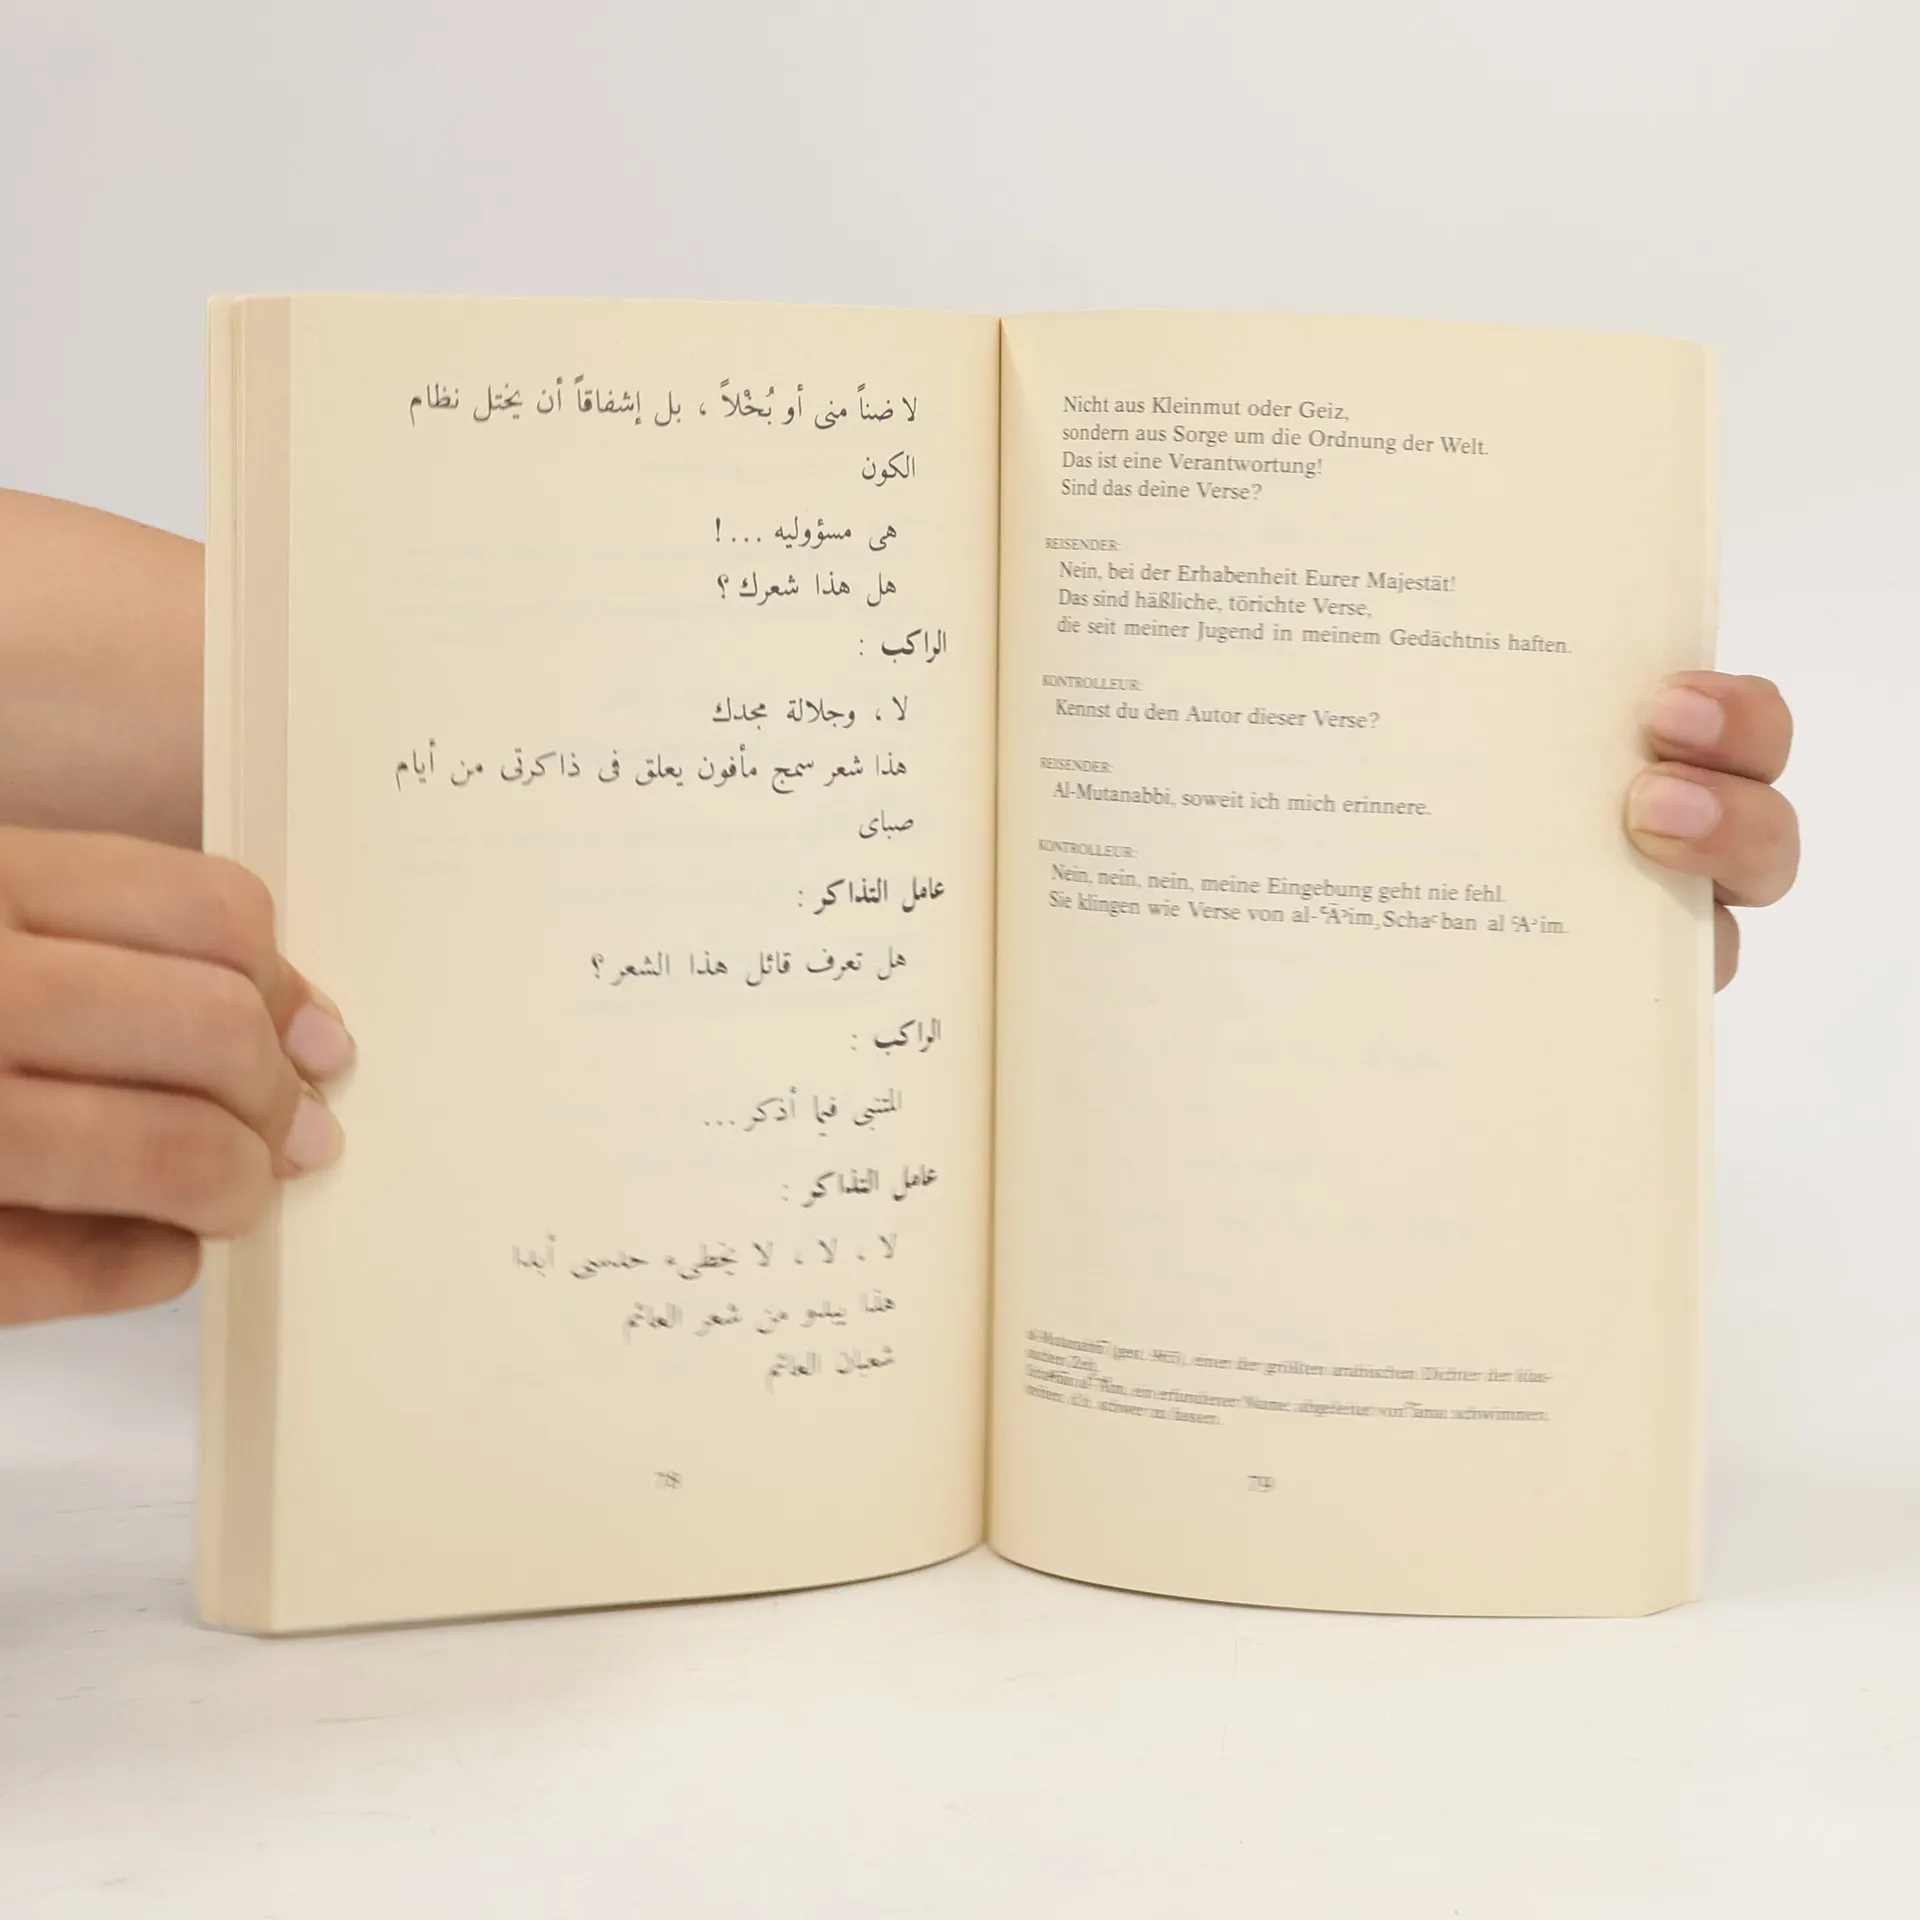 لا ضناً منى أو بُخْلاً ، بل إشفاقاً أن يختل نظام
الكون
هى مسؤوليه ...!
هل هذا شعرك ؟
الراكب :
لا ، وجلالة مجدك
هذا شعر سمج مأفون يعلق فى ذاكرتى من أيام
صباى
عامل التذاكر :
هل تعرف قائل هذا الشعر ؟
الراكب :
المتنبى فيما أذكر ...
عامل التذاكر :
لا ، لا ، لا يخطىء حدسى أبدا
هذا يبدو من شعر العائم
شعبان العائم
78
Nicht aus Kleinmut oder Geiz,
sondern aus Sorge um die Ordnung der Welt.
Das ist eine Verantwortung!
Sind das deine Verse?
REISENDER:
Nein, bei der Erhabenheit Eurer Majestät!
Das sind häßliche, törichte Verse,
die seit meiner Jugend in meinem Gedächtnis haften.
KONTROLLEUR:
Kennst du den Autor dieser Verse?
REISENDER:
Al-Mutanabbi, soweit ich mich erinnere.
KONTROLLEUR:
Nein, nein, nein, meine Eingebung geht nie fehl.
Sie klingen wie Verse von al-ʿĀʾim, Schaʿban al ʿAʾim.
al-Mutanabbi (gest. 965), einer der größten arabischen Dichter der klas-
sischen Zeit.
ein erfundener Name abgeleitet von schwimmen,
schwer zu fassen.
79